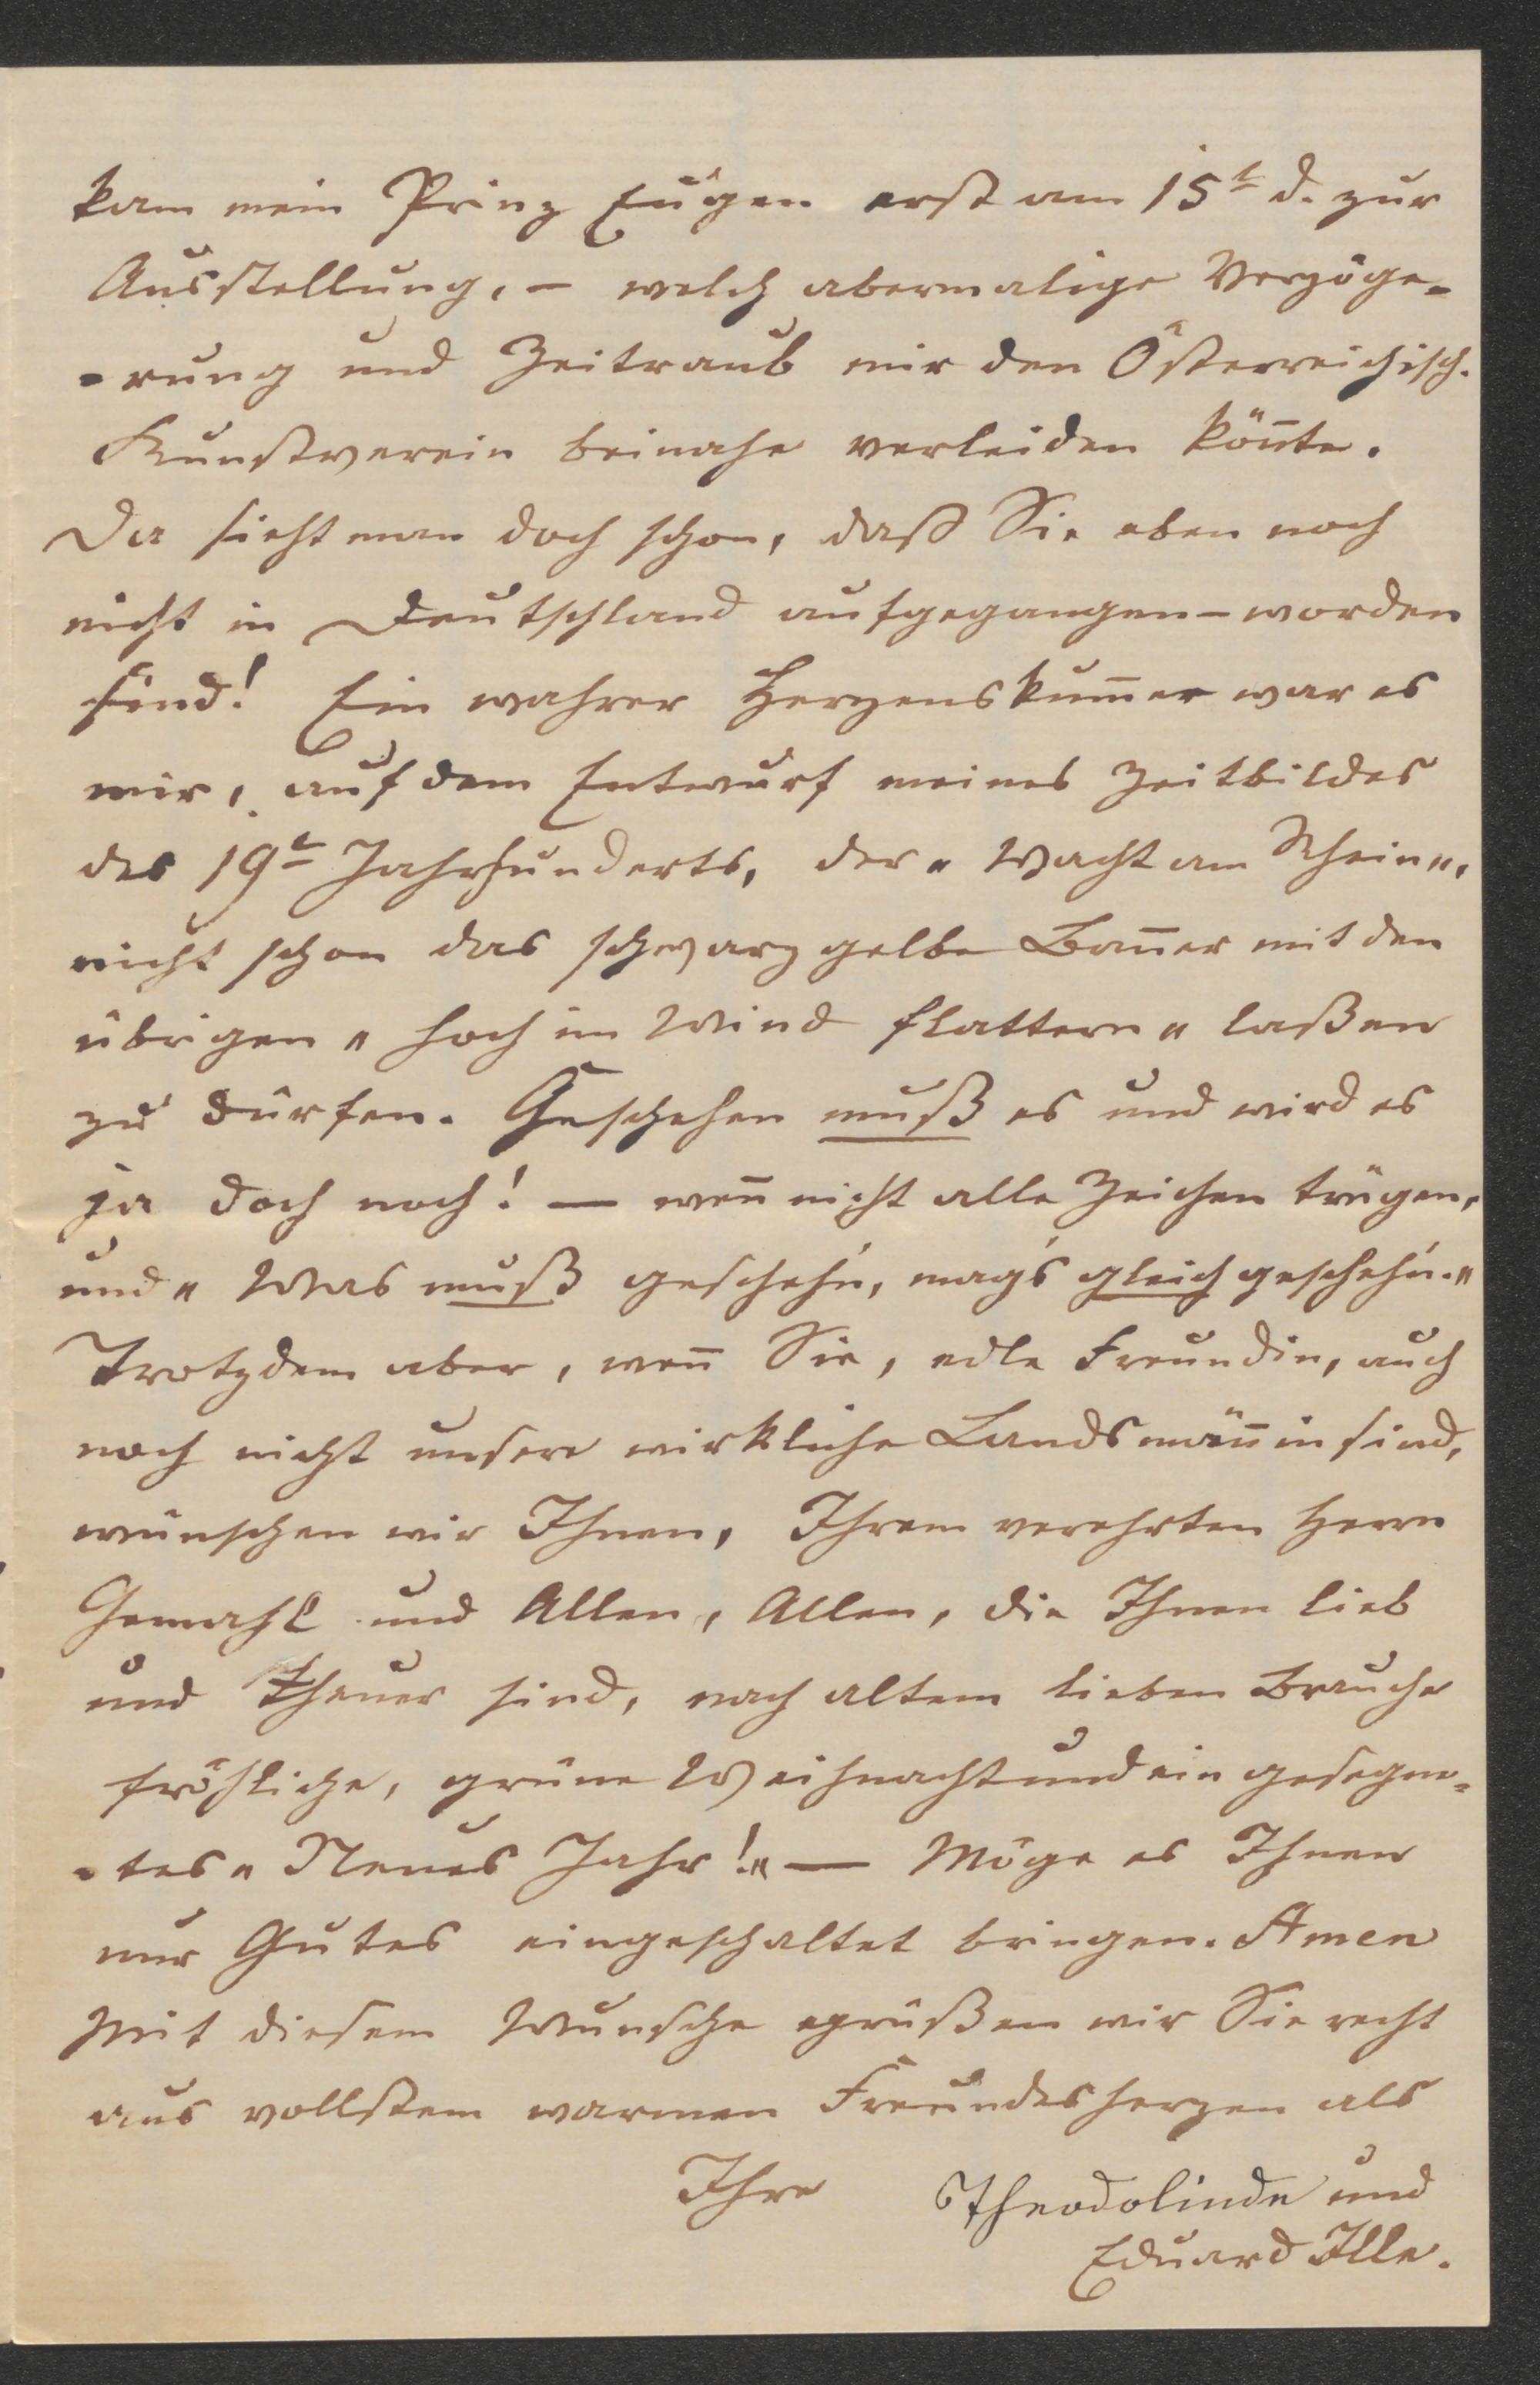 kam mein Prinz Eugen erst am 15t d. zur
Ausstellung, – welch abermalige Verzöge-
-rung und Zeitraub mir den Österreichisch.
Kunstverein beinahe verleiden kön̄te.
Da sieht man doch schon, daß Sie eben noch
nicht in Deutschland aufgegangen-worden
sind! Ein wahrer Herzenskum̄er war es
mir, auf dem Entwurf meines Zeitbildes
des 19t Jahrhunderts, der „Wacht am Rhein",
nicht schon das schwarz gelbe Ban̄er mit den
übrigen „hoch im Wind flattern" laßen
zu dürfen. Geschehen muß es und wird es
ja doch noch! — wen̄ nicht alle Zeichen trügen,
und „Was muß gescheh'n, mag's gleich gescheh'n."
Trotzdem aber, wen̄ Sie, edle Freundin, auch
noch nicht unsere wirkliche Landsmän̄in sind,
wünschen wir Ihnen, Ihrem verehrten Herrn
Gemahl und Allen, Allen, die Ihnen lieb
und theuer sind, nach altem lieben Brauche
fröhliche, grüne Weihnacht und ein gesegne-
-tes „Neues Jahr!" — Möge es Ihnen
nur Gutes eingeschaltet bringen. Amen
Mit diesem Wunsche grüßen wir Sie recht
aus vollstem warmen Freundesherzen als
Ihre Theodolinde und
Eduard Ille.